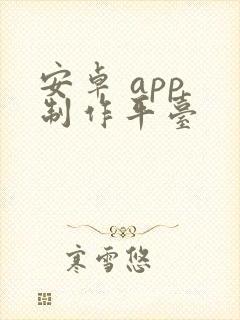 安卓 app
制作平臺
寒雪悠